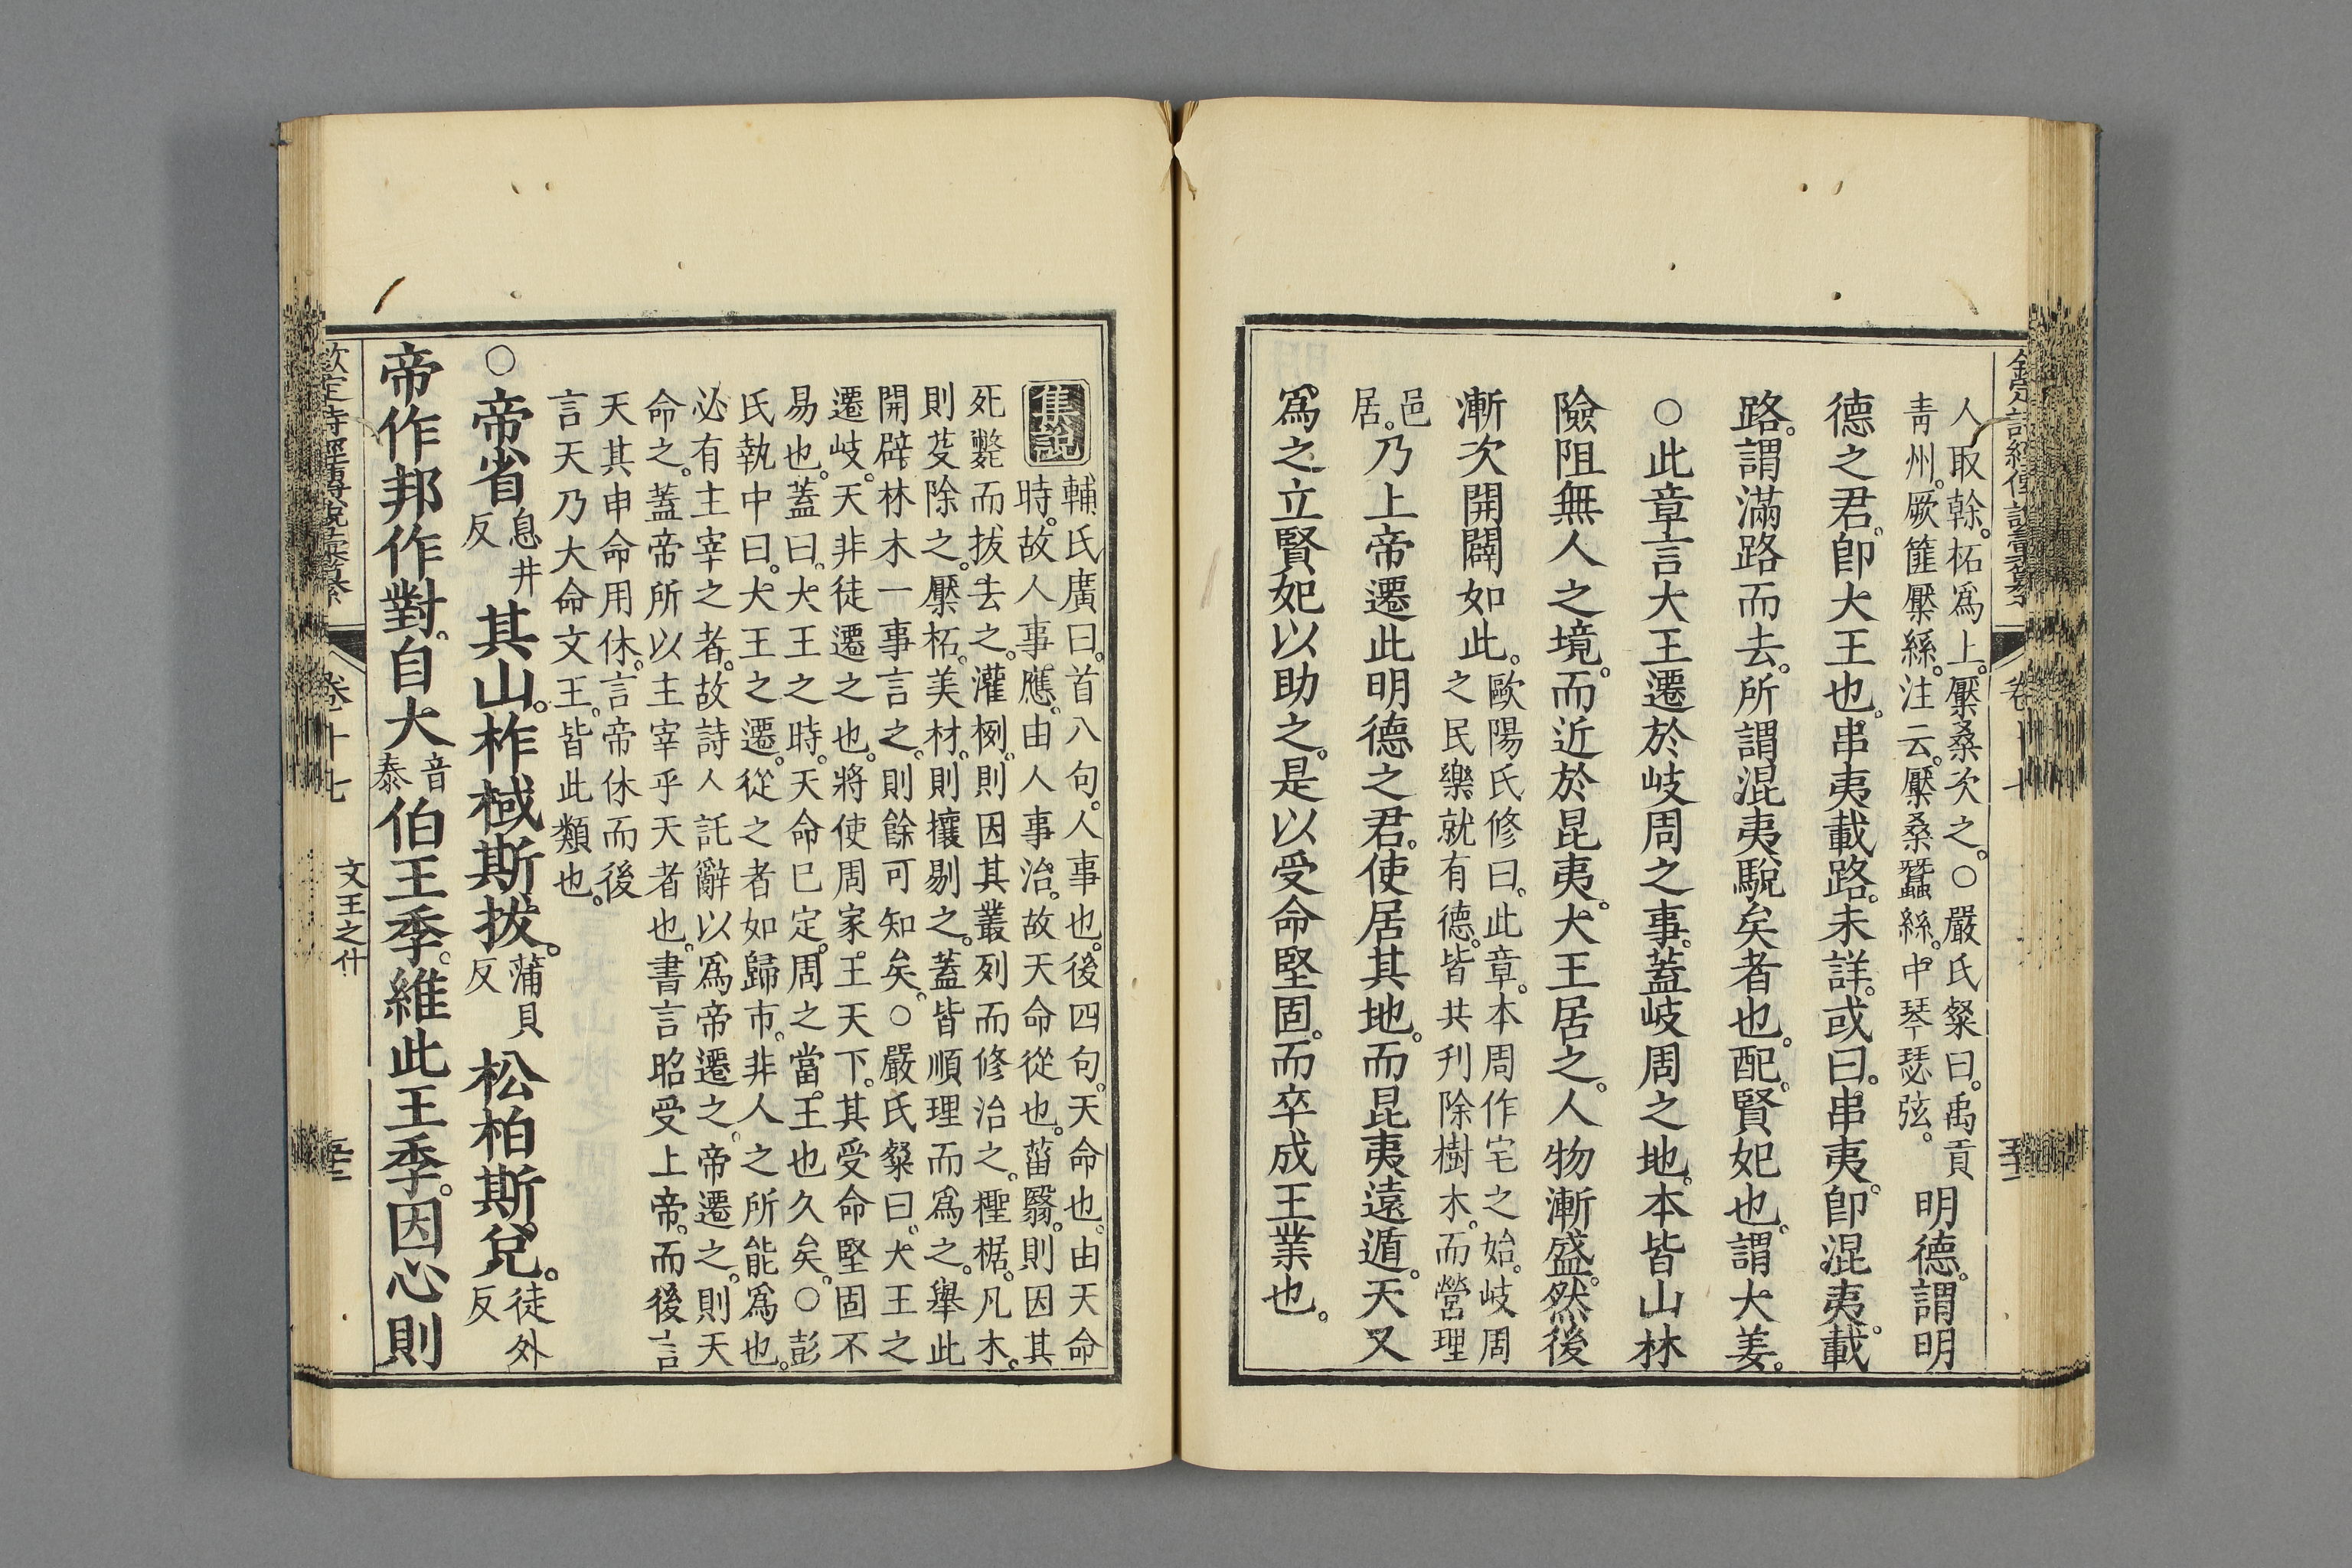 人取榦。柘爲上。檿桑次之。○嚴氏粲曰。禹貢
青州。厥篚檿絲。注云。檿桑蠶絲。中琴瑟弦。
明德。謂明
德之君。卽大王也。串夷載路。未詳。或曰。串夷。卽混夷。載
路。謂滿路而去。所謂混夷駾矣者也。配。賢妃也。謂大姜。
○此章言大王遷於岐周之事。蓋岐周之地。本皆山林
險阻無人之境。而近於昆夷。大王居之。人物漸盛。然後
漸次開闢如此。
歐陽氏修曰。此章。本周作宅之始。岐周
之民樂就有德。皆共刋除樹木。而營理
邑
居。
乃上帝遷此明德之君。使居其地。而昆夷遠遁。天又
爲之立賢妃以助之。是以受命堅固。而卒成王業也。
集說
輔氏廣曰。首八句。人事也。後四句。天命也。由天命
時。故人事應。由人事治。故天命從也。菑翳。則因其
死斃而拔去之。灌栵。則因其叢列而修治之。檉椐。凡木。
則芟除之。檿柘。美材。則攘剔之。蓋皆順理而爲之。舉此
開辟林木一事言之。則餘可知矣。○嚴氏粲曰。大王之
遷岐。天非徒遷之也。將使周家王天下。其受命堅固不
易也。蓋曰。大王之時。天命已定。周之當王也久矣。○彭
氏執中曰。大王之遷。從之者如歸市。非人之所能爲也。
必有主宰之者。故詩人託辭以爲帝遷之。帝遷之。則天
命之。蓋帝所以主宰乎天者也。書言昭受上帝。而後言
天其申命用休。言帝休而後
言天乃大命文王。皆此類也。
○帝省
息井
反
其山。柞棫斯拔。
蒲貝
反
松柏斯兌。
徒外
反
帝作邦作對。自大
音
泰
伯王季。維此王季。因心則
欽定詩經傳說彙纂
卷十七
文王之什